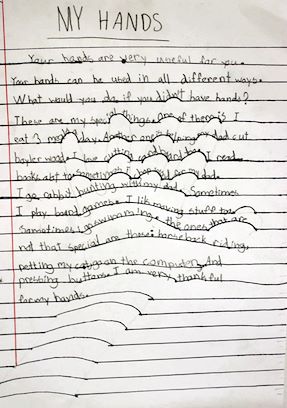 MY HANDS
Your hands are very useful for you.
Your hands can be used in all different ways.
What would you do, if you didn't have hands?
These are my special things. One of them is I
eat 3 meals a day. Another one is helping my dad cut
boyler wood. I love cutting and hard too. I read
books alot to. Sometimes I for my dad.
I go rabbit hunting with my dad. Sometimes
I play board games. I lik making stuff to.
Sometimes I go swimming. the ones that are
not that special are those: horseback riding,
petting my cat, go on the computer, And
pressing buttons. I am very thankful
for my hands.